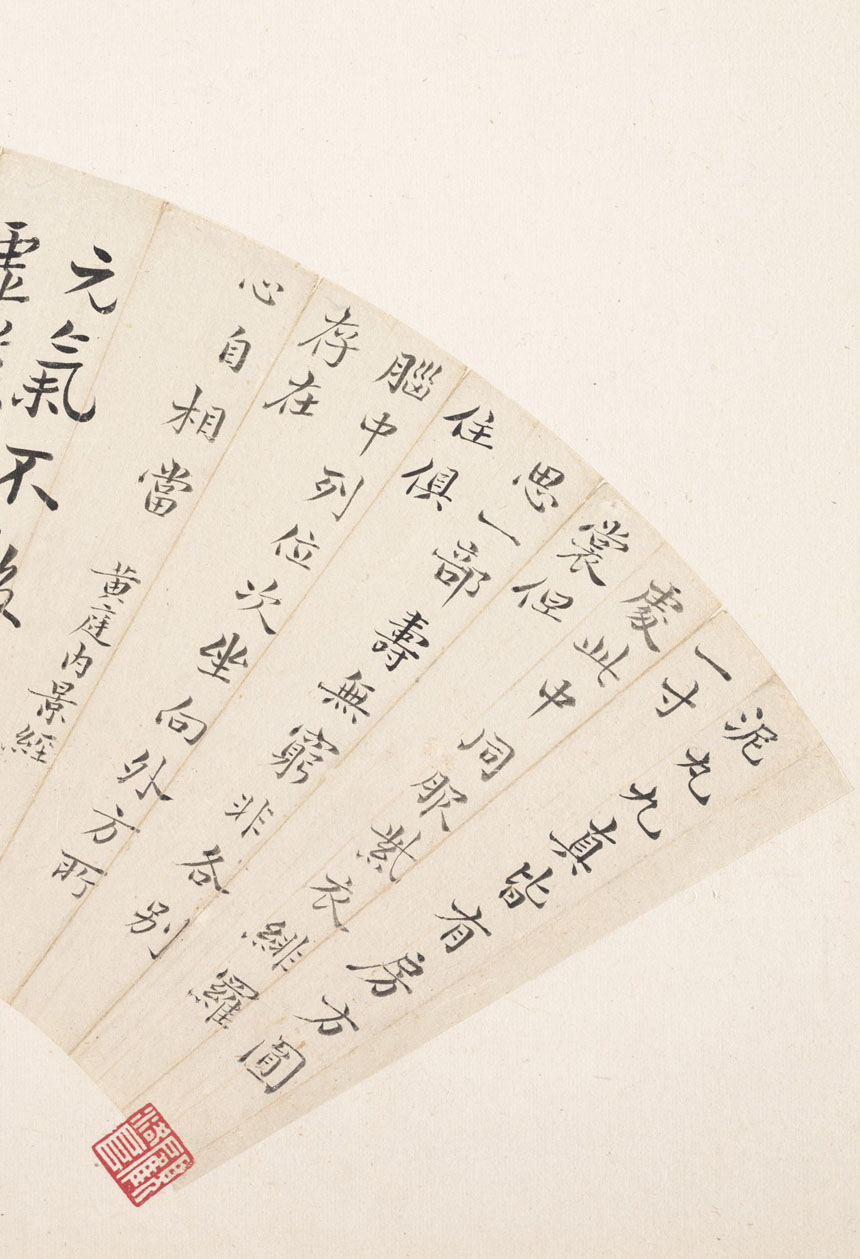 泥丸九真皆有房方圓
一寸
處此中同服紫衣緋羅
裳但
思一部壽無窮非各別
住俱
腦中列位次坐向外方所
存在
心自相當
黄庭内景經
元氣不
虛